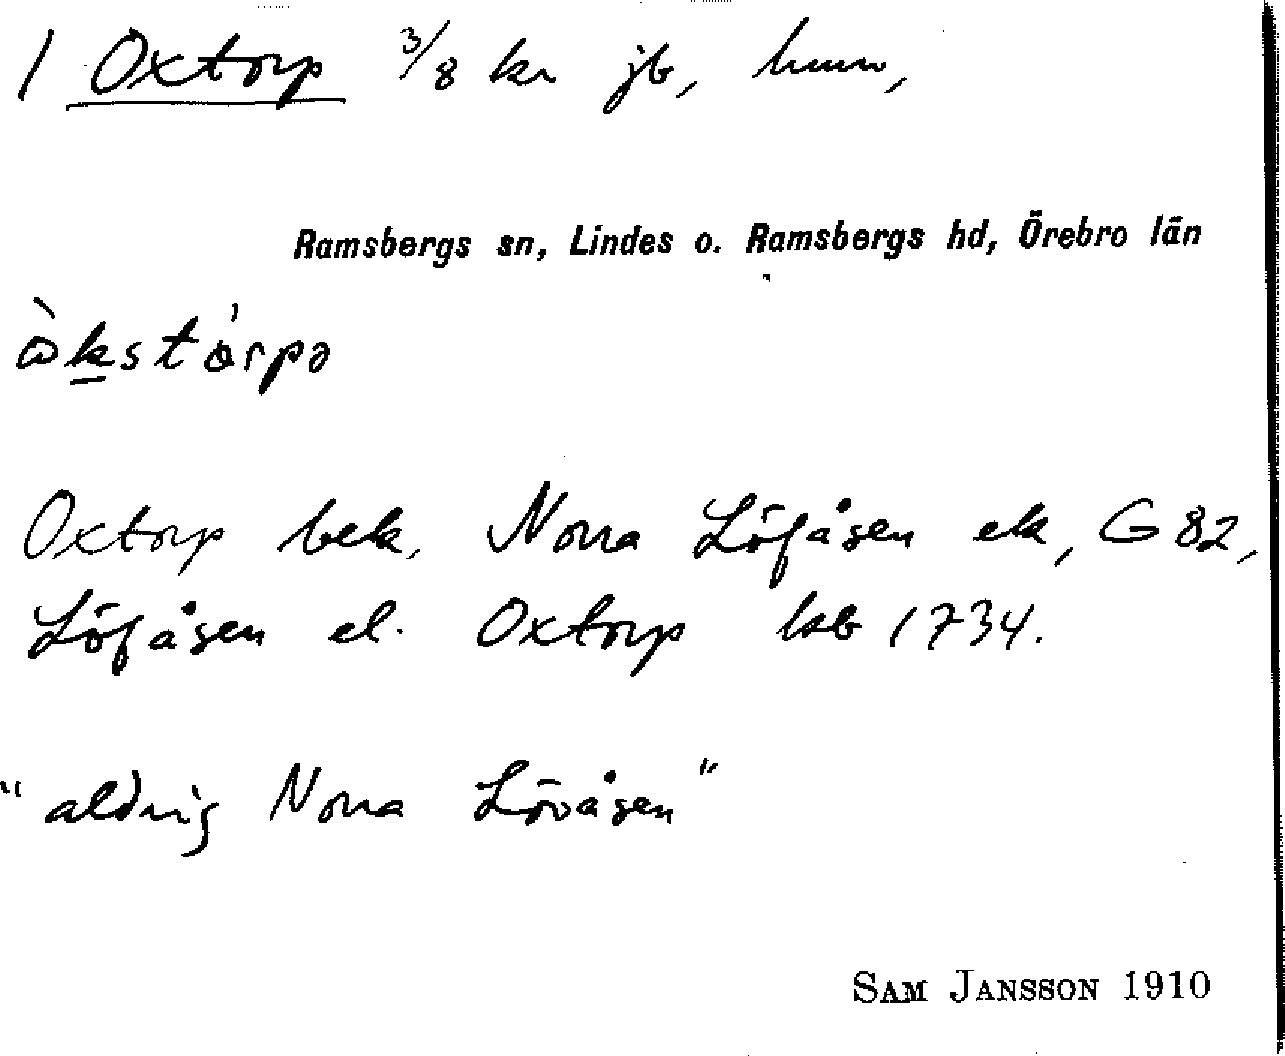 1 Oxtorp 3/8 kr jb, hmn,
Ramsbergs sn, Lindes o. Ramsbergs hd, Örebro län
Oxtorp bek. Norra Löfåsen ek, G 82,
Löfåsen el. Oxtorp lsb 1734.
"aldrig Norra Lövåsen"
SAM JANSSON 1910